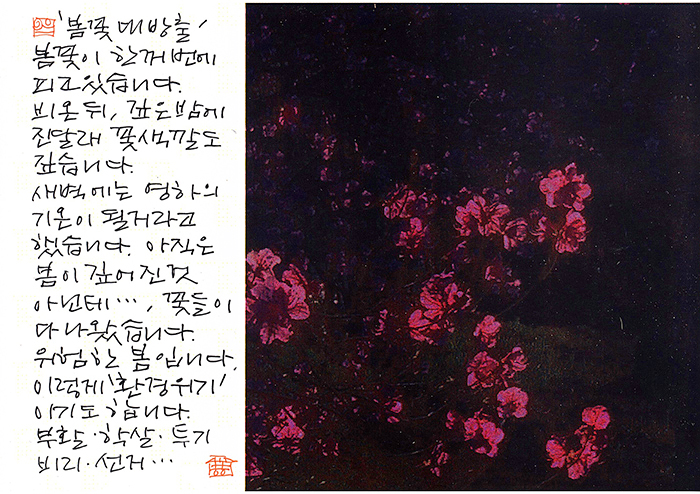 '봄꽃 대방출'
봄꽃이 한꺼번에
피고있습니다.
비온 뒤, 깊은밤에
진달래 꽃색깔도
깊습니다.
새벽에는 영하의
기온이 될거라고
했습니다. 아직은
봄이 깊어진것
아닌데…, 꽃들이
다 나왔습니다.
위험한 봄입니다.
이렇게 '환경위기'
이기도 합니다.
부활·학살·투기
비리·선거…